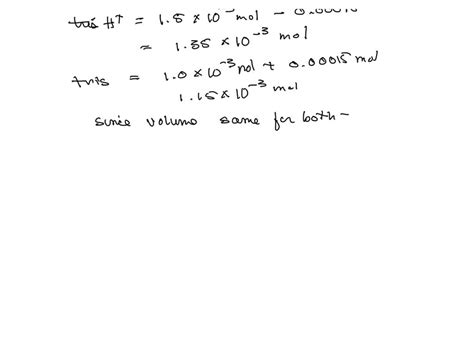 tris H⁺ = 1.5 × 10⁻ mol - 0.00015
= 1.35 × 10⁻³ mol
tris = 1.0 × 10⁻³ mol + 0.00015 mol
1.15 × 10⁻³ mol
since volume same for both -